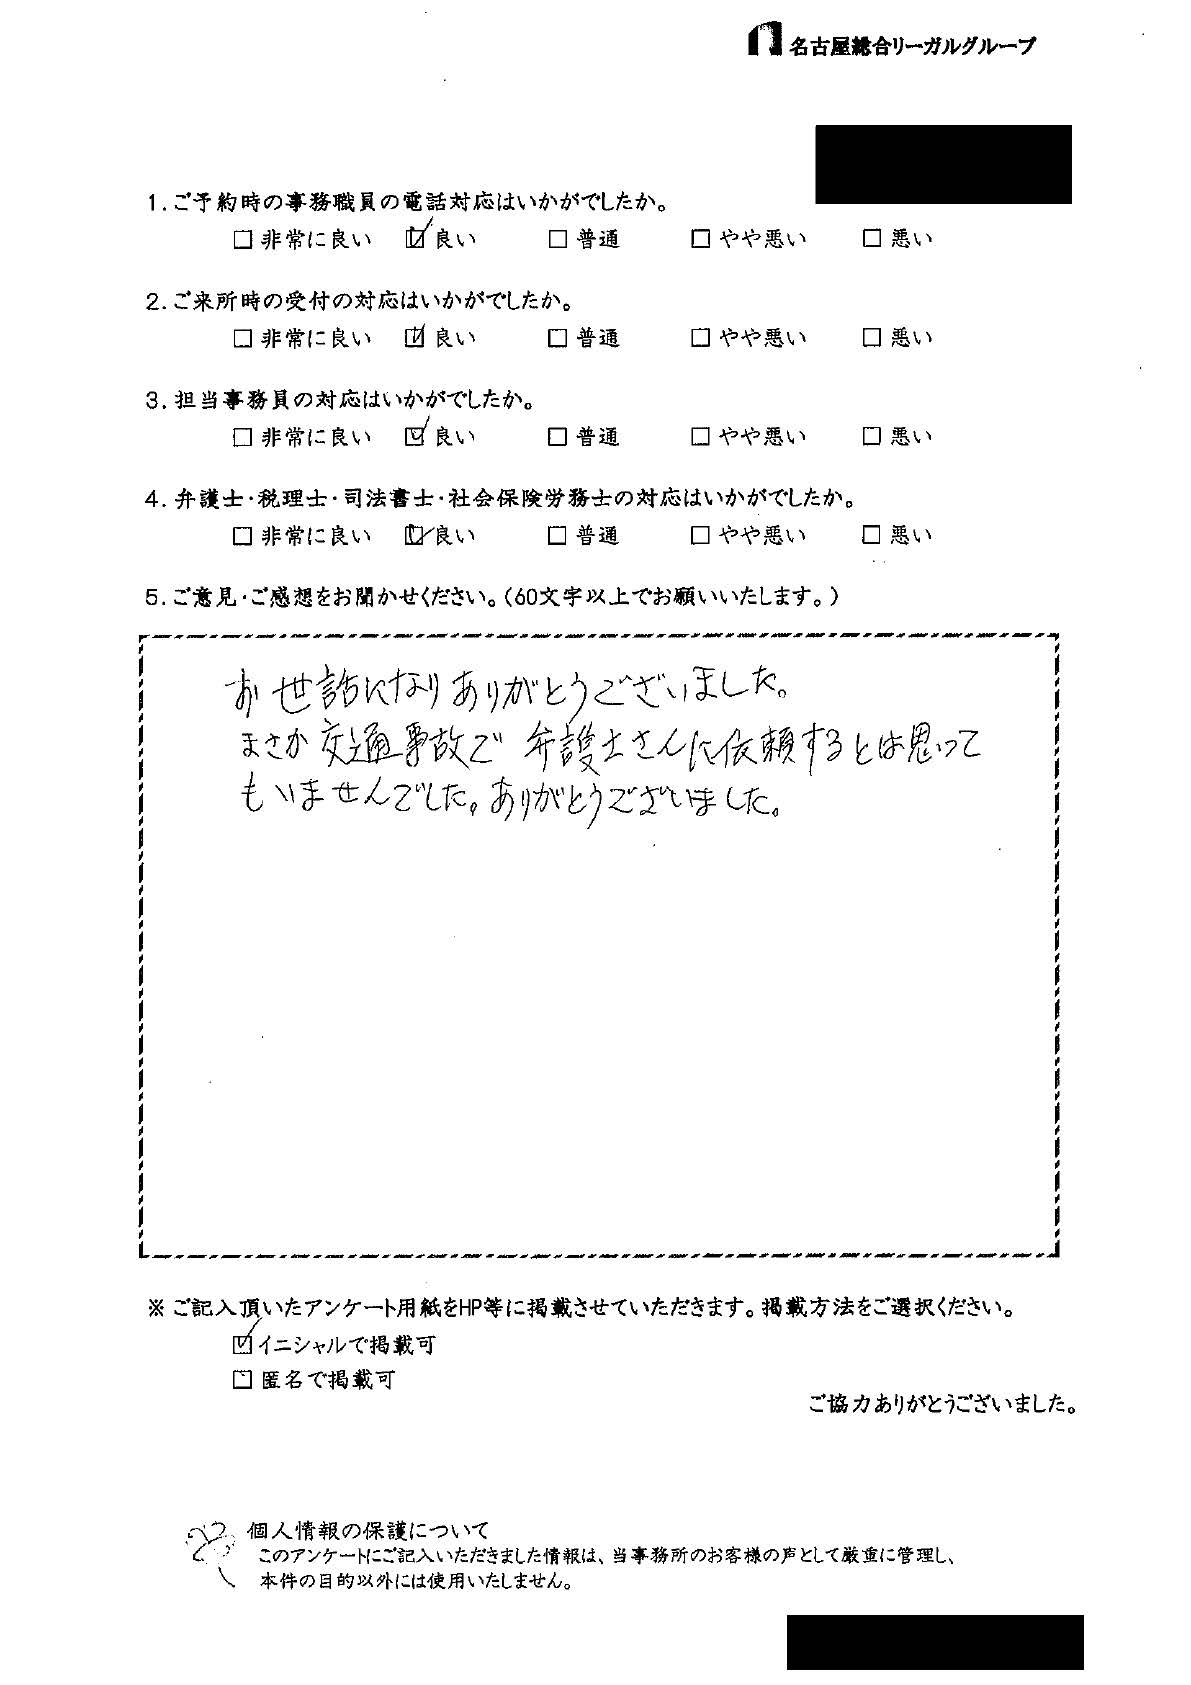 名古屋総合リーガルグループ
1.ご予約時の事務職員の電話対応はいかがでしたか。
□ 非常に良い ☑ 良い □ 普通 □ やや悪い □ 悪い
2.ご来所時の受付の対応はいかがでしたか。
□ 非常に良い ☑ 良い □ 普通 □ やや悪い □ 悪い
3.担当事務員の対応はいかがでしたか。
□ 非常に良い ☑ 良い □ 普通 □ やや悪い □ 悪い
4.弁護士・税理士・司法書士・社会保険労務士の対応はいかがでしたか。
□ 非常に良い ☑ 良い □ 普通 □ やや悪い □ 悪い
5.ご意見・ご感想をお聞かせください。(60文字以上でお願いいたします。)
お世話になりありがとうございました。
まさか交通事故で弁護士さんに依頼するとは思って
もいませんでした。ありがとうございました。
※ ご記入頂いたアンケート用紙をHP等に掲載させていただきます。掲載方法をご選択ください。
☑ イニシャルで掲載可
□ 匿名で掲載可
ご協力ありがとうございました。
個人情報の保護について
このアンケートにご記入いただきました情報は、当事務所のお客様の声として厳重に管理し、
本件の目的以外には使用いたしません。